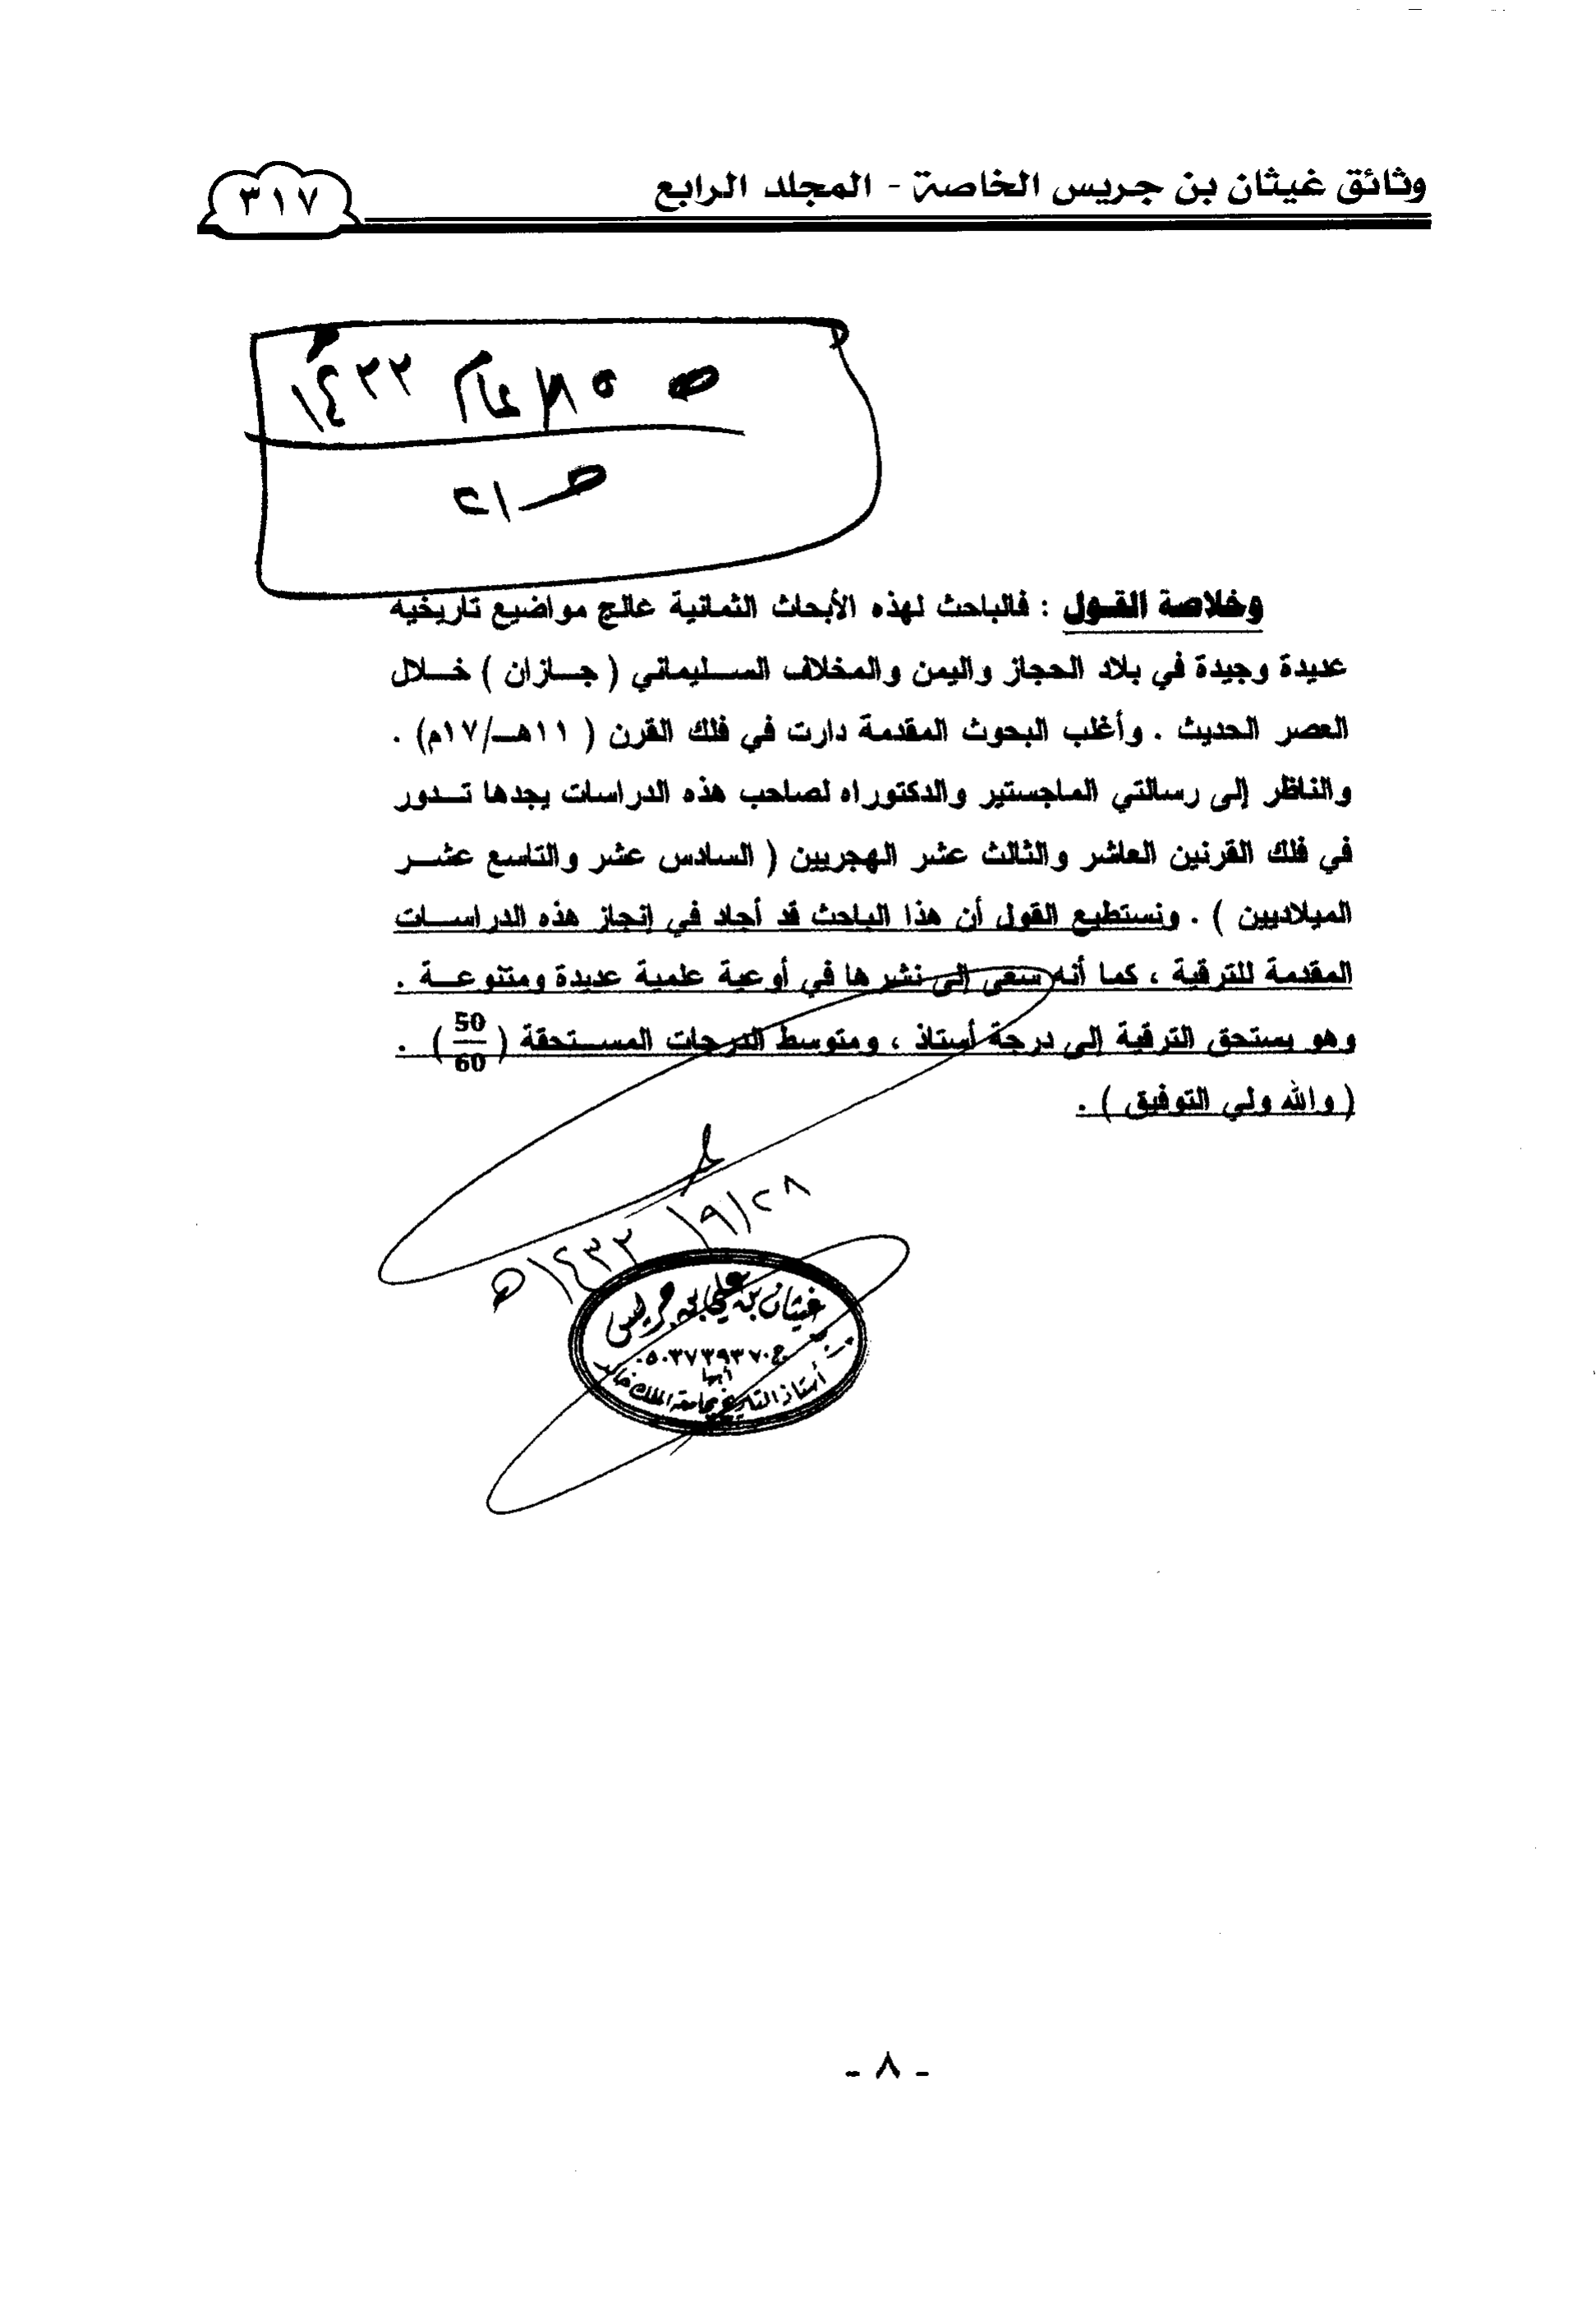 وثائق غيثان بن جريس الخاصة - المجلد الرابع
٣١٧
عام ١٤٣٢
وخلاصة القول : فالباحث لهذه الأبحاث الثمانية عالج مواضيع تاريخيه
عديدة وجيدة في بلاد الحجاز واليمن والمخلاف السليماني ( جازان ) خلال
العصر الحديث . وأغلب البحوث المقدمة دارت في فلك القرن ( ١١هـ/١٧م) .
والناظر إلى رسالتي الماجستير والدكتوراه لصاحب هذه الدراسات يجدها تدور
في فلك القرنين العاشر والثالث عشر الهجريين ( السادس عشر والتاسع عشر
الميلاديين ) . ونستطيع القول أن هذا الباحث قد أجاد في إنجاز هذه الدراسات
المقدمة للترقية ، كما أنه سعى إلى نشرها في أوعية علمية عديدة ومتنوعة .
وهو يستحق الترقية إلى درجة أستاذ ، ومتوسط الدرجات المستحقة ( 50/60 ) .
( والله ولي التوفيق ) .
٢٨/٩/١٤٣٢هـ
غيثان بن علي بن جريس
ج٠٥٠٣٧٣٩٣٧٠
أبها
أستاذ التاريخ بجامعة الملك خالد
- ٨ -